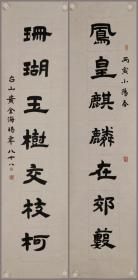 鳳皇麒麟在郊藪
丙寅小陽春
珊瑚玉樹交枝柯
台山黃金海時年八十